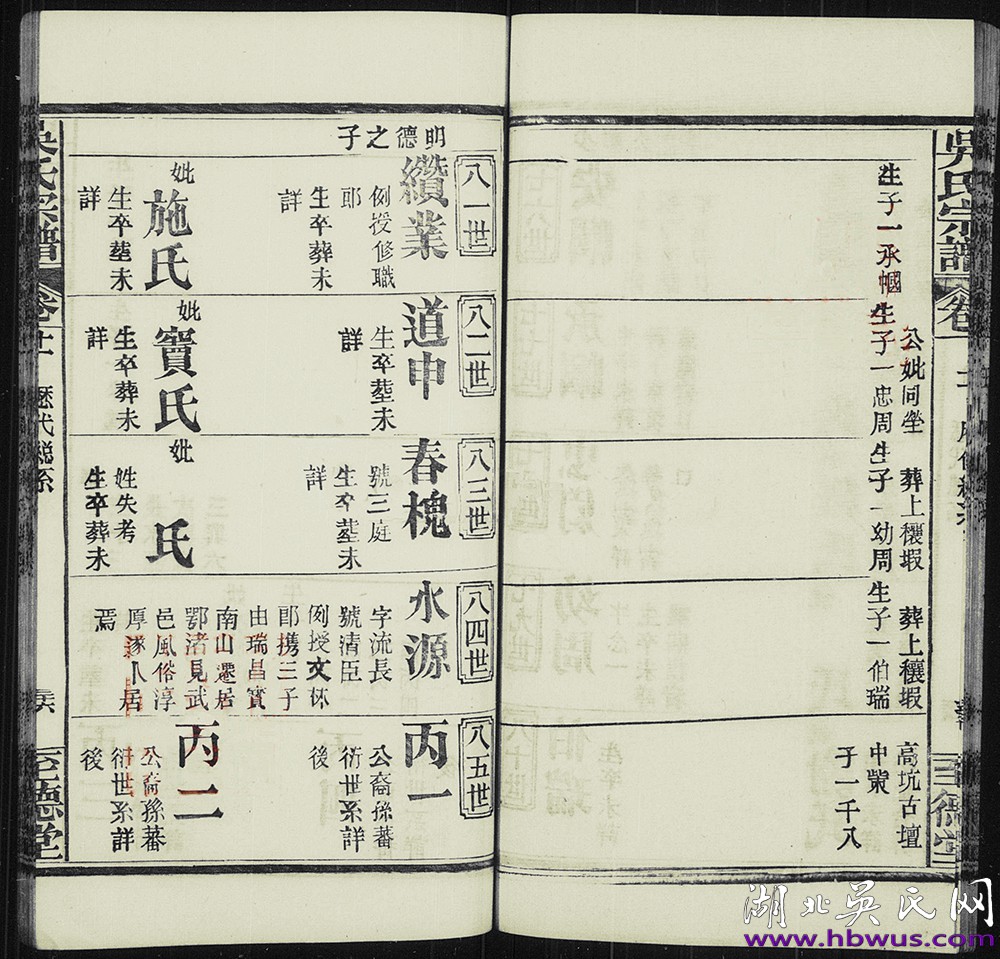 吳氏宗譜
卷十一
生子一承幗
公妣同塋
生子一忠周
葬上穰塅
生子一幼周
葬上穰塅
生子一伯瑞
高坑古壇
中甽
子一千八
明德之子
八一世
纘業
例授修職
郎
生卒葬未
詳
妣
施氏
生卒塟未
詳
八二世
道申
生卒塟未
詳
妣
竇氏
生卒葬未
詳
八三世
春槐
號三庭
生卒塟未
詳
妣
氏
姓失考
生卒葬未
八四世
水源
字流長
號清臣
例授文林
郎携三子
由瑞昌實
南山遷居
鄂渚見武
邑風俗淳
厚遂卜居
焉
八五世
丙一
公裔孫蕃
衍世系詳
後
丙二
公裔孫蕃
衍世系詳
後
吳氏宗譜
卷十一
歷代總系
至德堂
湖北吳氏网
www.hbwus.com